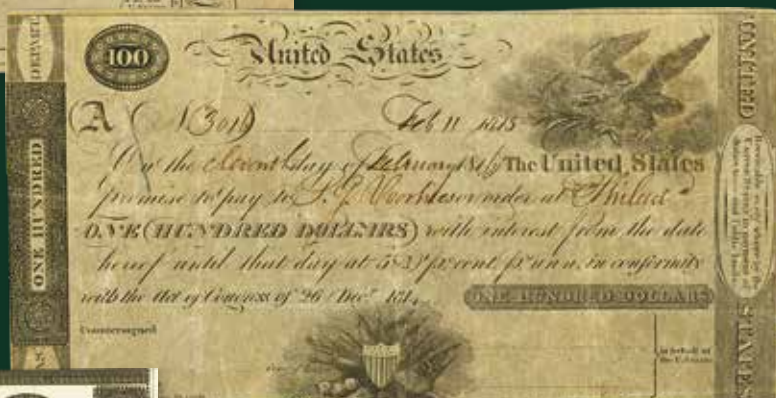 DEPART.
100
United States
A
Feb 11 1815
ONE HUNDRED
On the eleventh day of February 1816 The United States
promise to pay to or order at Philad.a
ONE (HUNDRED DOLLARS) with interest from the date
hereof until that day at 5 2/5 pr. cent pr. ann. in conformity
with the Act of Congress of 26 Decr. 1814.
ONE HUNDRED DOLLARS
Countersigned
in behalf of
the
UNITED
STATES